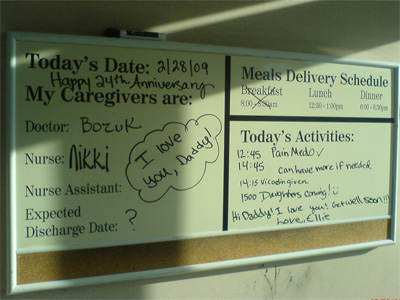 Today's Date: 2/28/09
Happy 24th Anniversary
My Caregivers are:
Doctor: Bozuk
Nurse: Nikki
I love you, Daddy!
Nurse Assistant:
Expected
Discharge Date: ?
Meals Delivery Schedule
Breakfast Lunch Dinner
8:00 - 8:30am 12:30 - 1:00pm 6:00 - 6:30pm
Today's Activities:
12:45 Pain Meds ✓
14:45 can have more if needed
14:15 Vicodin given
1500 Daughters coming! :)
Hi Daddy! I love you! Get well soon!!!
Love, Ellie